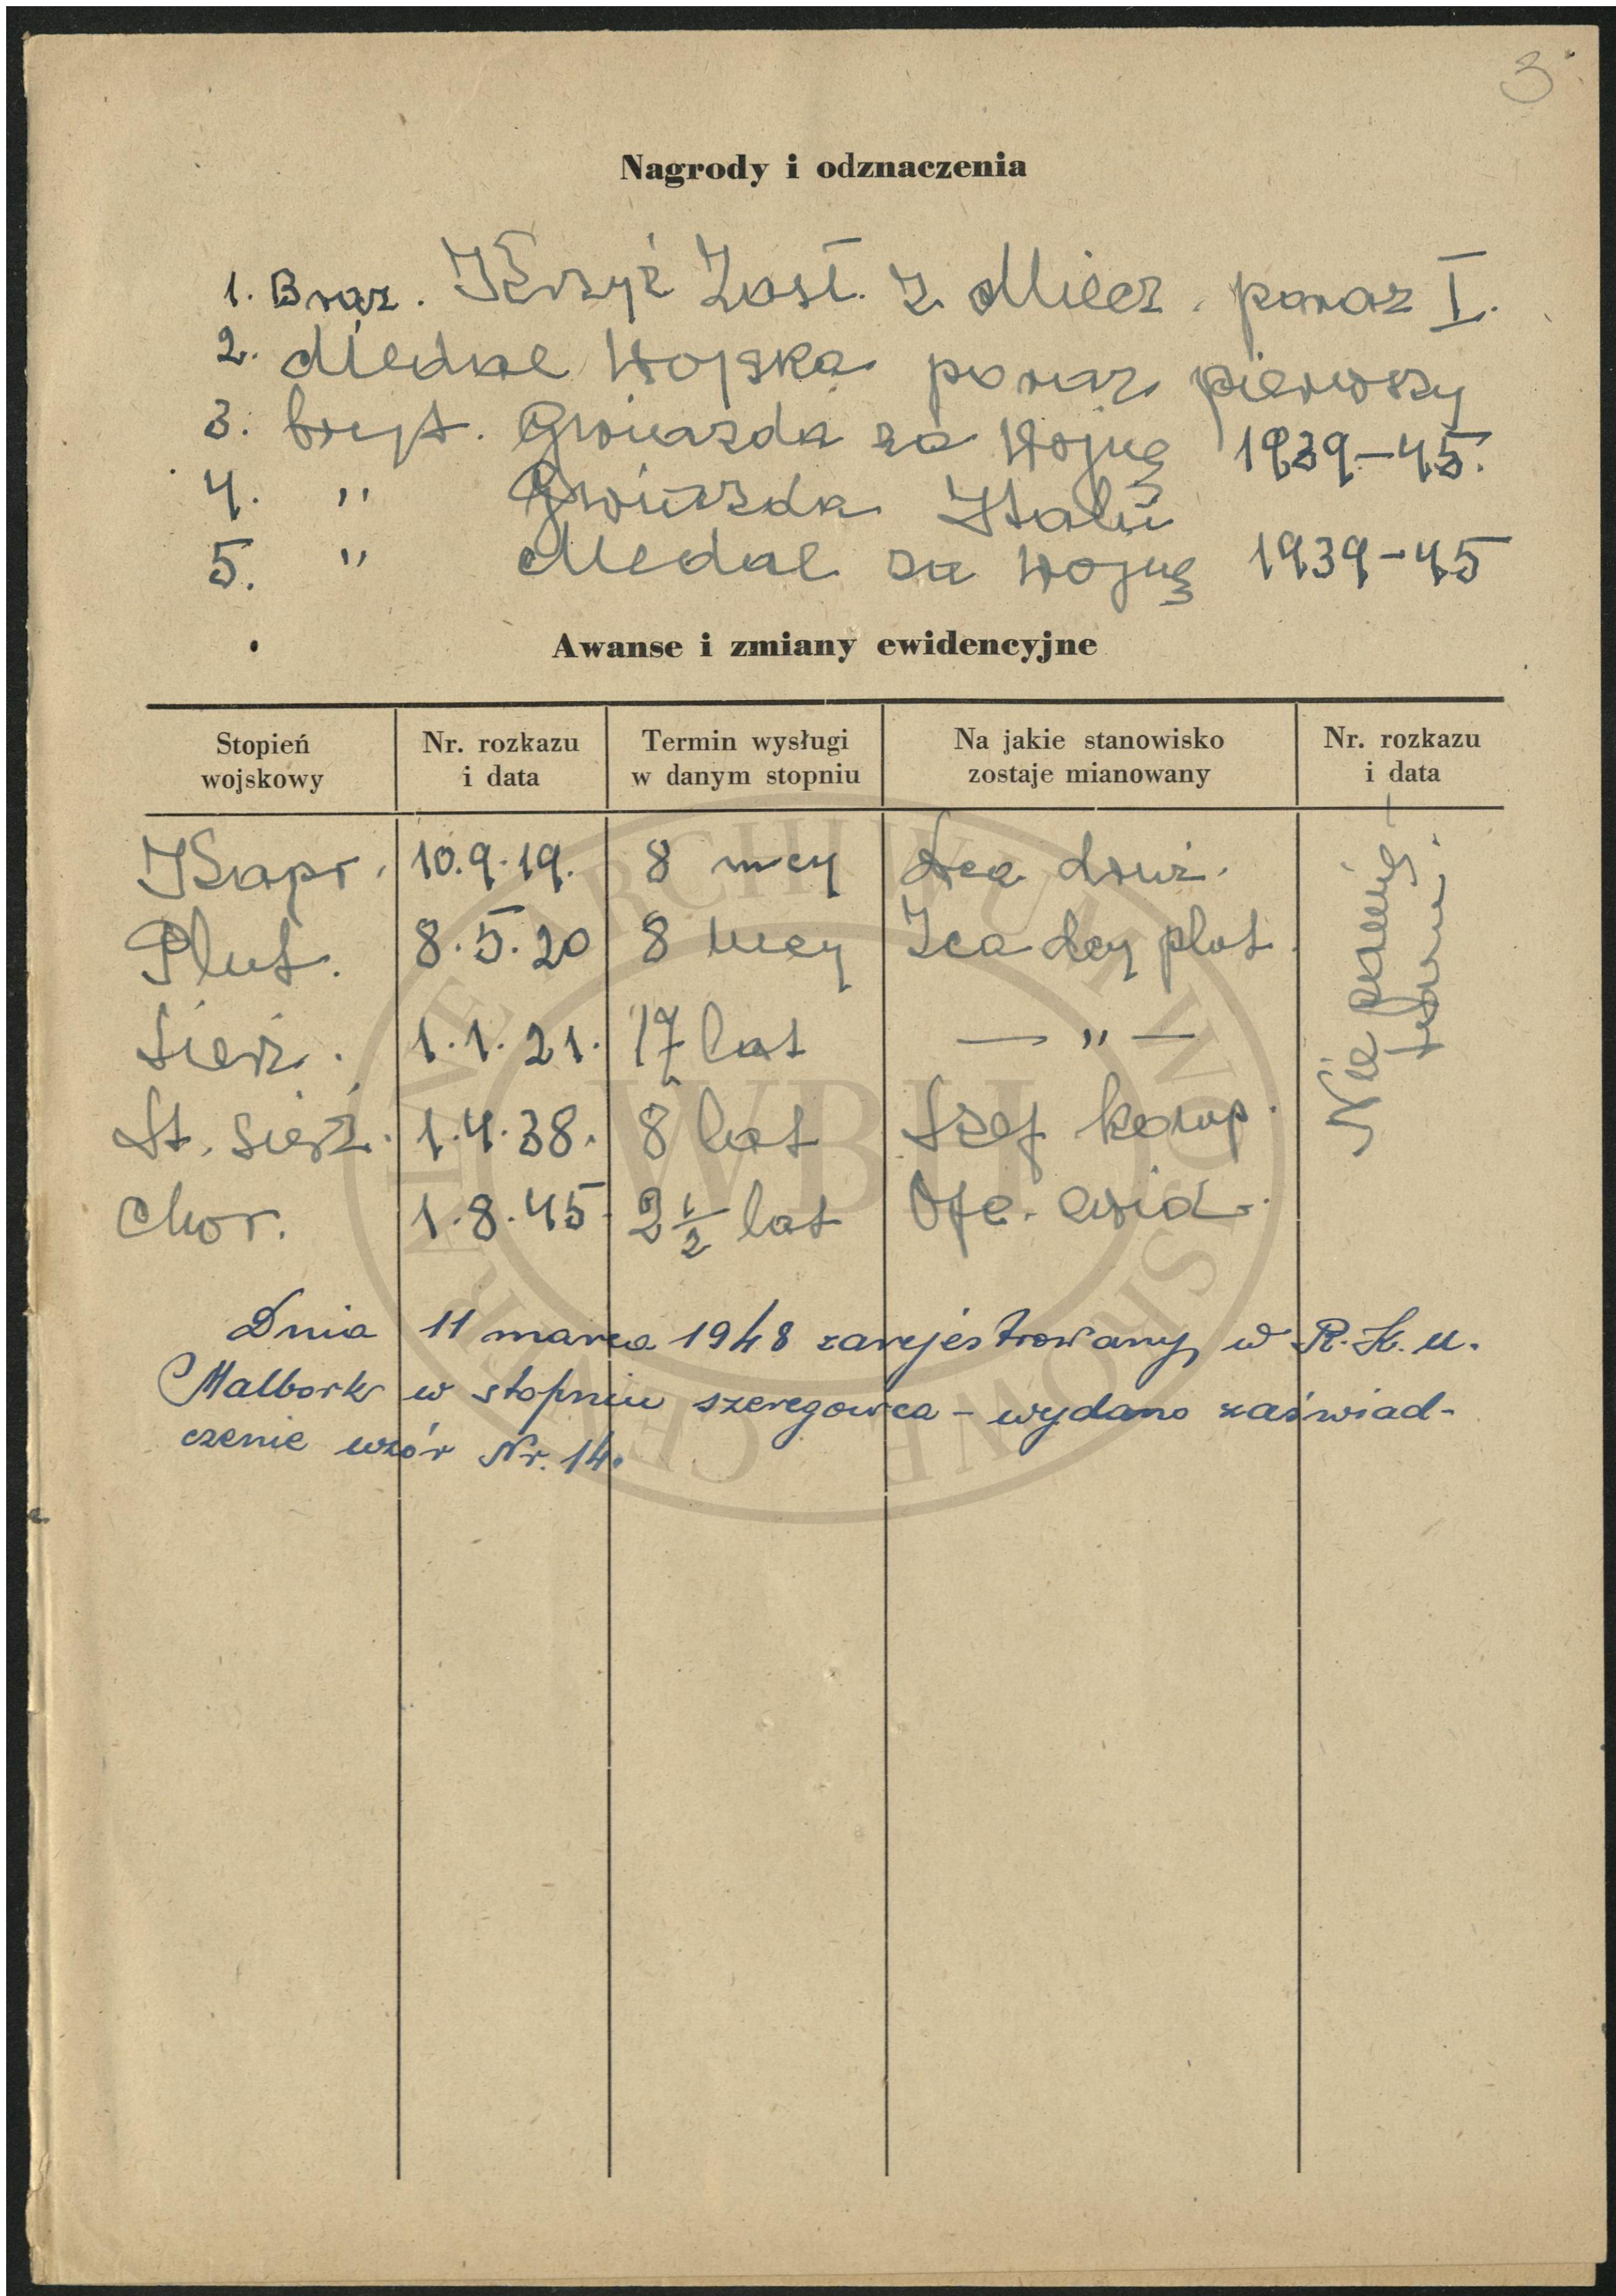 3
Nagrody i odznaczenia
1. Brąz. Krzyż Zasł. z Miecz. poraz I.
2. Medal Wojska poraz pierwszy
3. bryt. Gwiazda za Wojnę 1939-45.
4. " Gwiazda Italii
5. " Medal za Wojnę 1939-45
Awanse i zmiany ewidencyjne
Stopień wojskowy Nr. rozkazu i data Termin wysługi w danym stopniu Na jakie stanowisko zostaje mianowany Nr. rozkazu i data
Kapr. 10.9.19. 8 mcy Dca druż.
Plut. 8.5.20 8 mcy Zca dcy plut.
Sierż. 1.1.21. 17 lat — " —
St. sierż. 1.4.38. 8 lat Szef komp.
Chor. 1.8.45 2 1/2 lat Ofc. ewid.
Nie
Dnia 11 marca 1948 zarejestrowany w R.K.U.
Malbork w stopniu szeregowca - wydano zaświad-
czenie wzór Nr. 14.
CENTRALNE ARCHIWUM WOJSKOWE
WBH